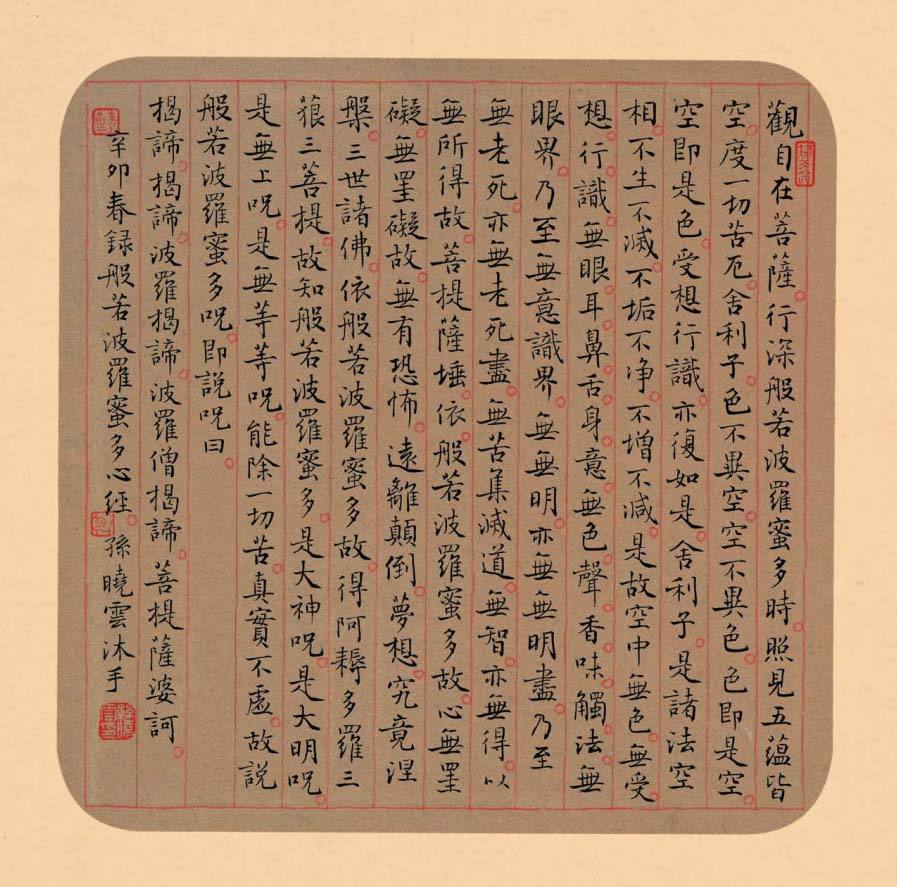 觀自在菩薩行深般若波羅蜜多時照見五蘊皆
空度一切苦厄舍利子色不異空空不異色色即是空
空即是色受想行識亦復如是舍利子是諸法空
相不生不滅不垢不净不增不減是故空中無色無受
想行識無眼耳鼻舌身意無色聲香味觸法無
眼界乃至無意識界無無明亦無無明盡乃至
無老死亦無老死盡無苦集滅道無智亦無得以
無所得故菩提薩埵依般若波羅蜜多故心無罣
礙無罣礙故無有恐怖遠離顛倒夢想究竟涅
槃三世諸佛依般若波羅蜜多故得阿耨多羅三
藐三菩提故知般若波羅蜜多是大神咒是大明咒
是無上咒是無等等咒能除一切苦真實不虛故說
般若波羅蜜多咒即說咒曰
揭諦揭諦波羅揭諦波羅僧揭諦菩提薩婆訶
辛卯春録般若波羅蜜多心經孫曉雲沐手